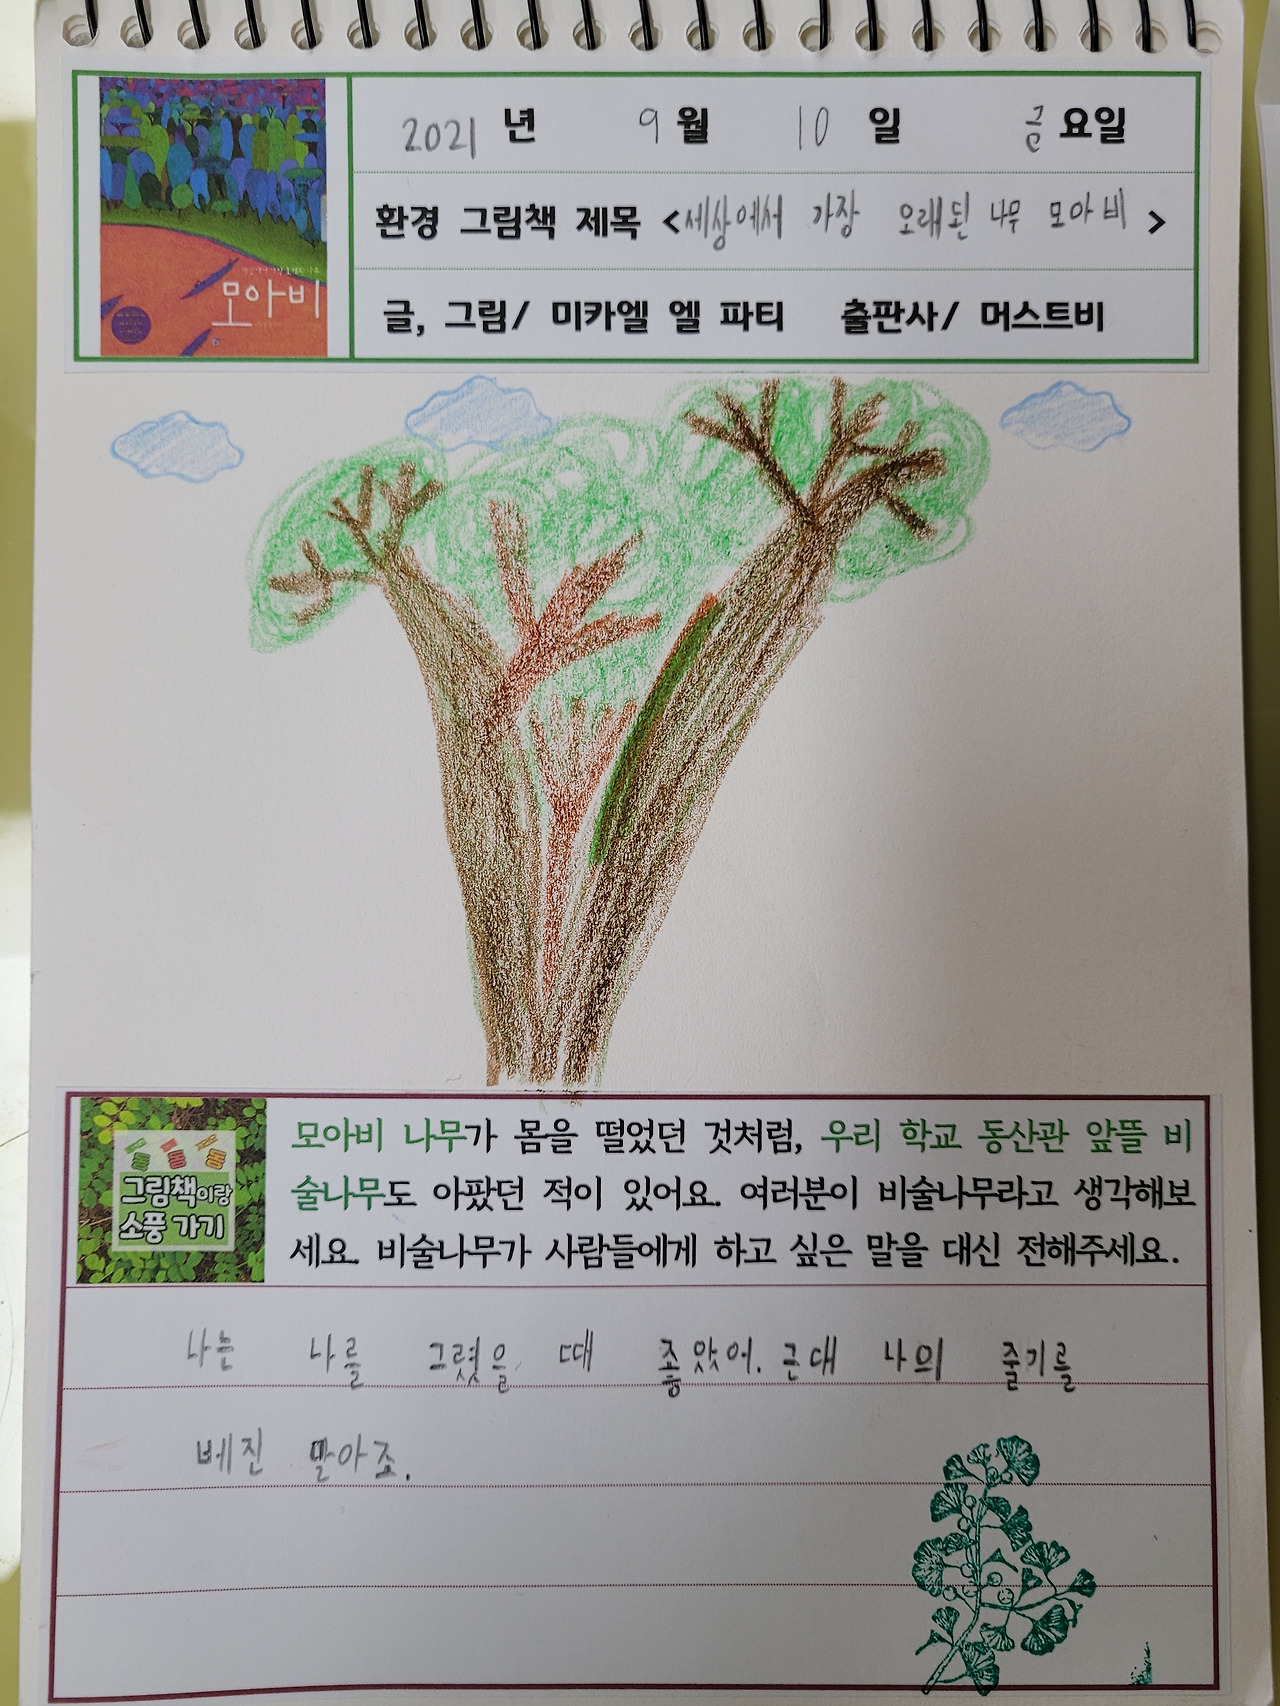 2021 년 9 월 10 일 금 요일
환경 그림책 제목 <세상에서 가장 오래된 나무 모아비>
글, 그림/ 미카엘 엘 파티 출판사/ 머스트비
모아비
모아비 나무가 몸을 떨었던 것처럼, 우리 학교 동산관 앞뜰 비
술나무도 아팠던 적이 있어요. 여러분이 비술나무라고 생각해보
세요. 비술나무가 사람들에게 하고 싶은 말을 대신 전해주세요.
그림책이랑
소풍 가기
나는 나를 그렸을 때 좋았어. 근대 나의 줄기를
베진 말아조.